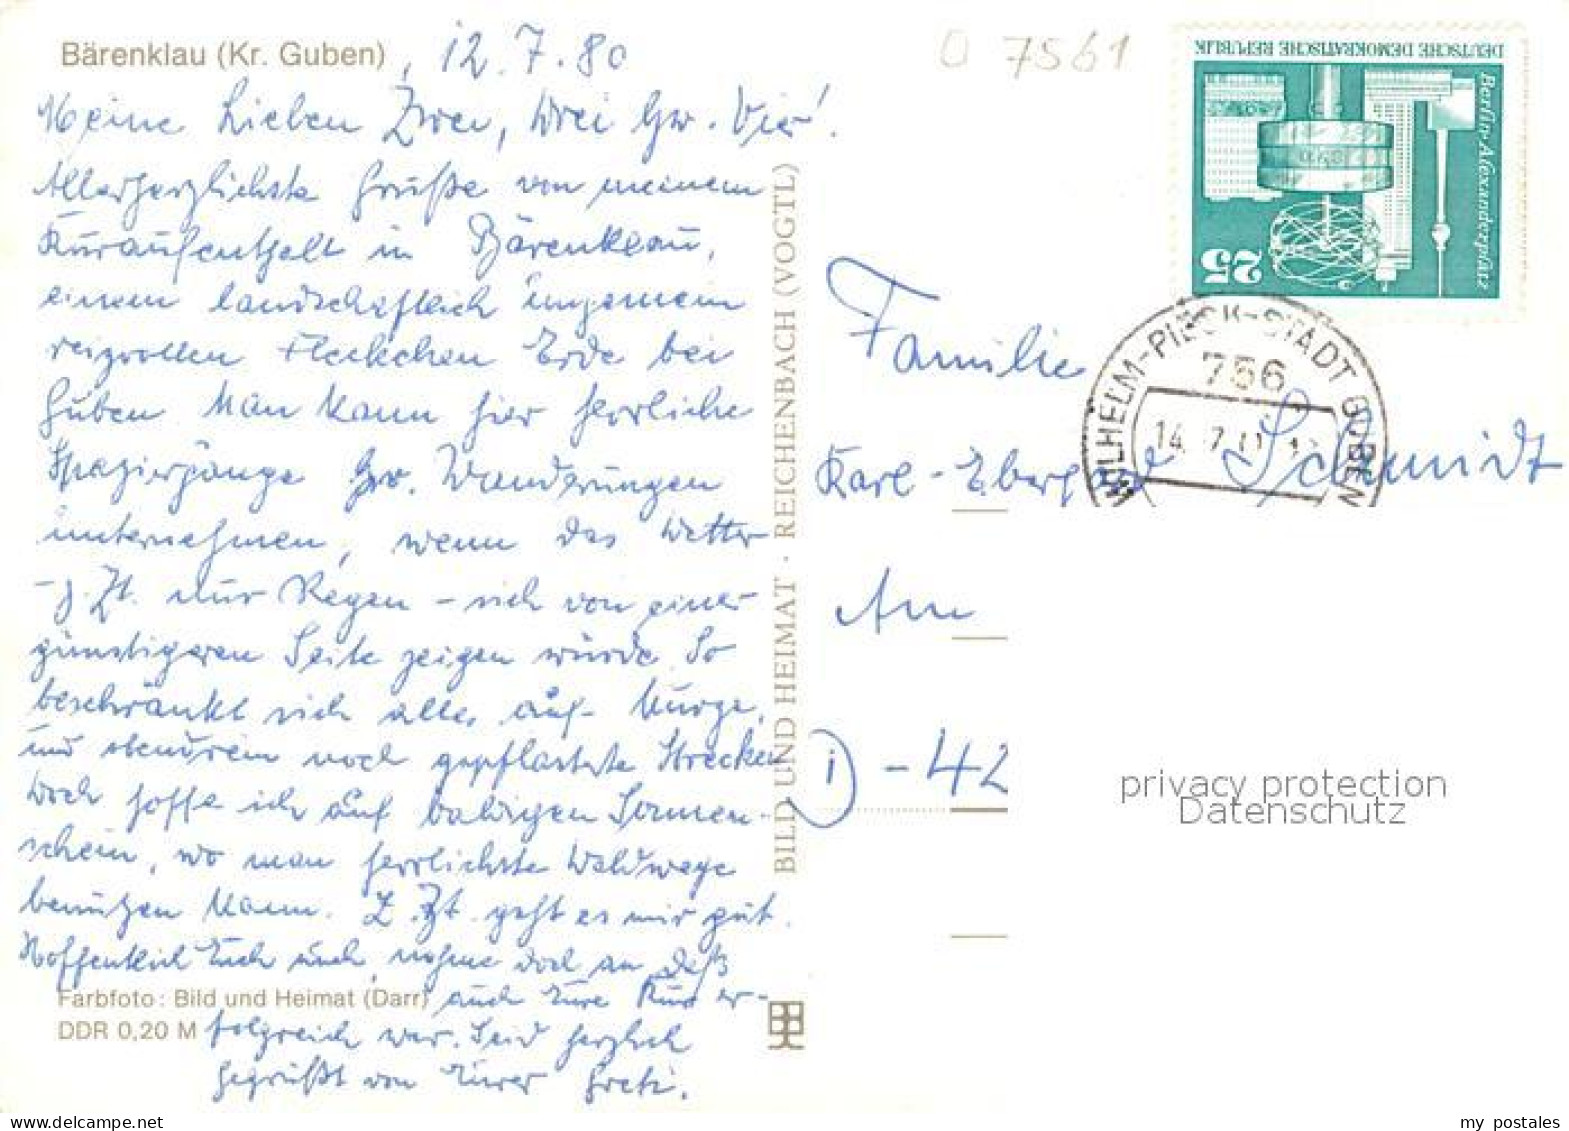 Bärenklau (Kr. Guben), 12.7.80
Meine Lieben Zwei, Drei bzw. Vier!
Allerherzlichste Grüße von meinem
Kuraufenthalt in Bärenklau,
einem landschaftlich ungemein
reizvollen Fleckchen Erde bei
Guben. Man kann hier herrliche
Spaziergänge bzw. Wanderungen
unternehmen, wenn das Wetter
- z. Zt. nur Regen - sich von einer
günstigeren Seite zeigen würde. So
beschränkt sich alles auf kurze,
und obendrein noch gepflasterte Strecken
Doch hoffe ich auf baldigen Sonnen-
schein, wo man herrlichste Waldwege
benutzen kann. Z. Zt. geht es mir gut.
Hoffentlich Euch auch, nehme doch an, daß
auch Eure Kur er-
folgreich war. Seid herzlich
gegrüßt von Eurer Greti.
Farbfoto: Bild und Heimat (Darr)
DDR 0,20 M
BILD UND HEIMAT · REICHENBACH (VOGTL)
O 7561
DEUTSCHE DEMOKRATISCHE REPUBLIK
Berlin-Alexanderplatz
25
WILHELM-PIECK-STADT GUBEN
756
14. 7.
Familie
Karl-Eberhard Schmidt
Am
D-42
privacy protection
Datenschutz
my postales